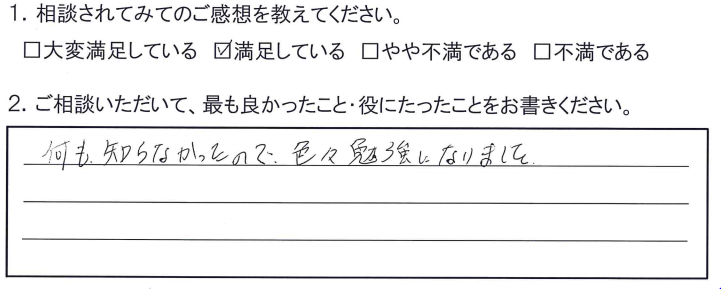 1．相談されてみてのご感想を教えてください。
□大変満足している ☑満足している □やや不満である □不満である
2．ご相談いただいて、最も良かったこと・役にたったことをお書きください。
何も、知らなかったので、色々勉強になりました。